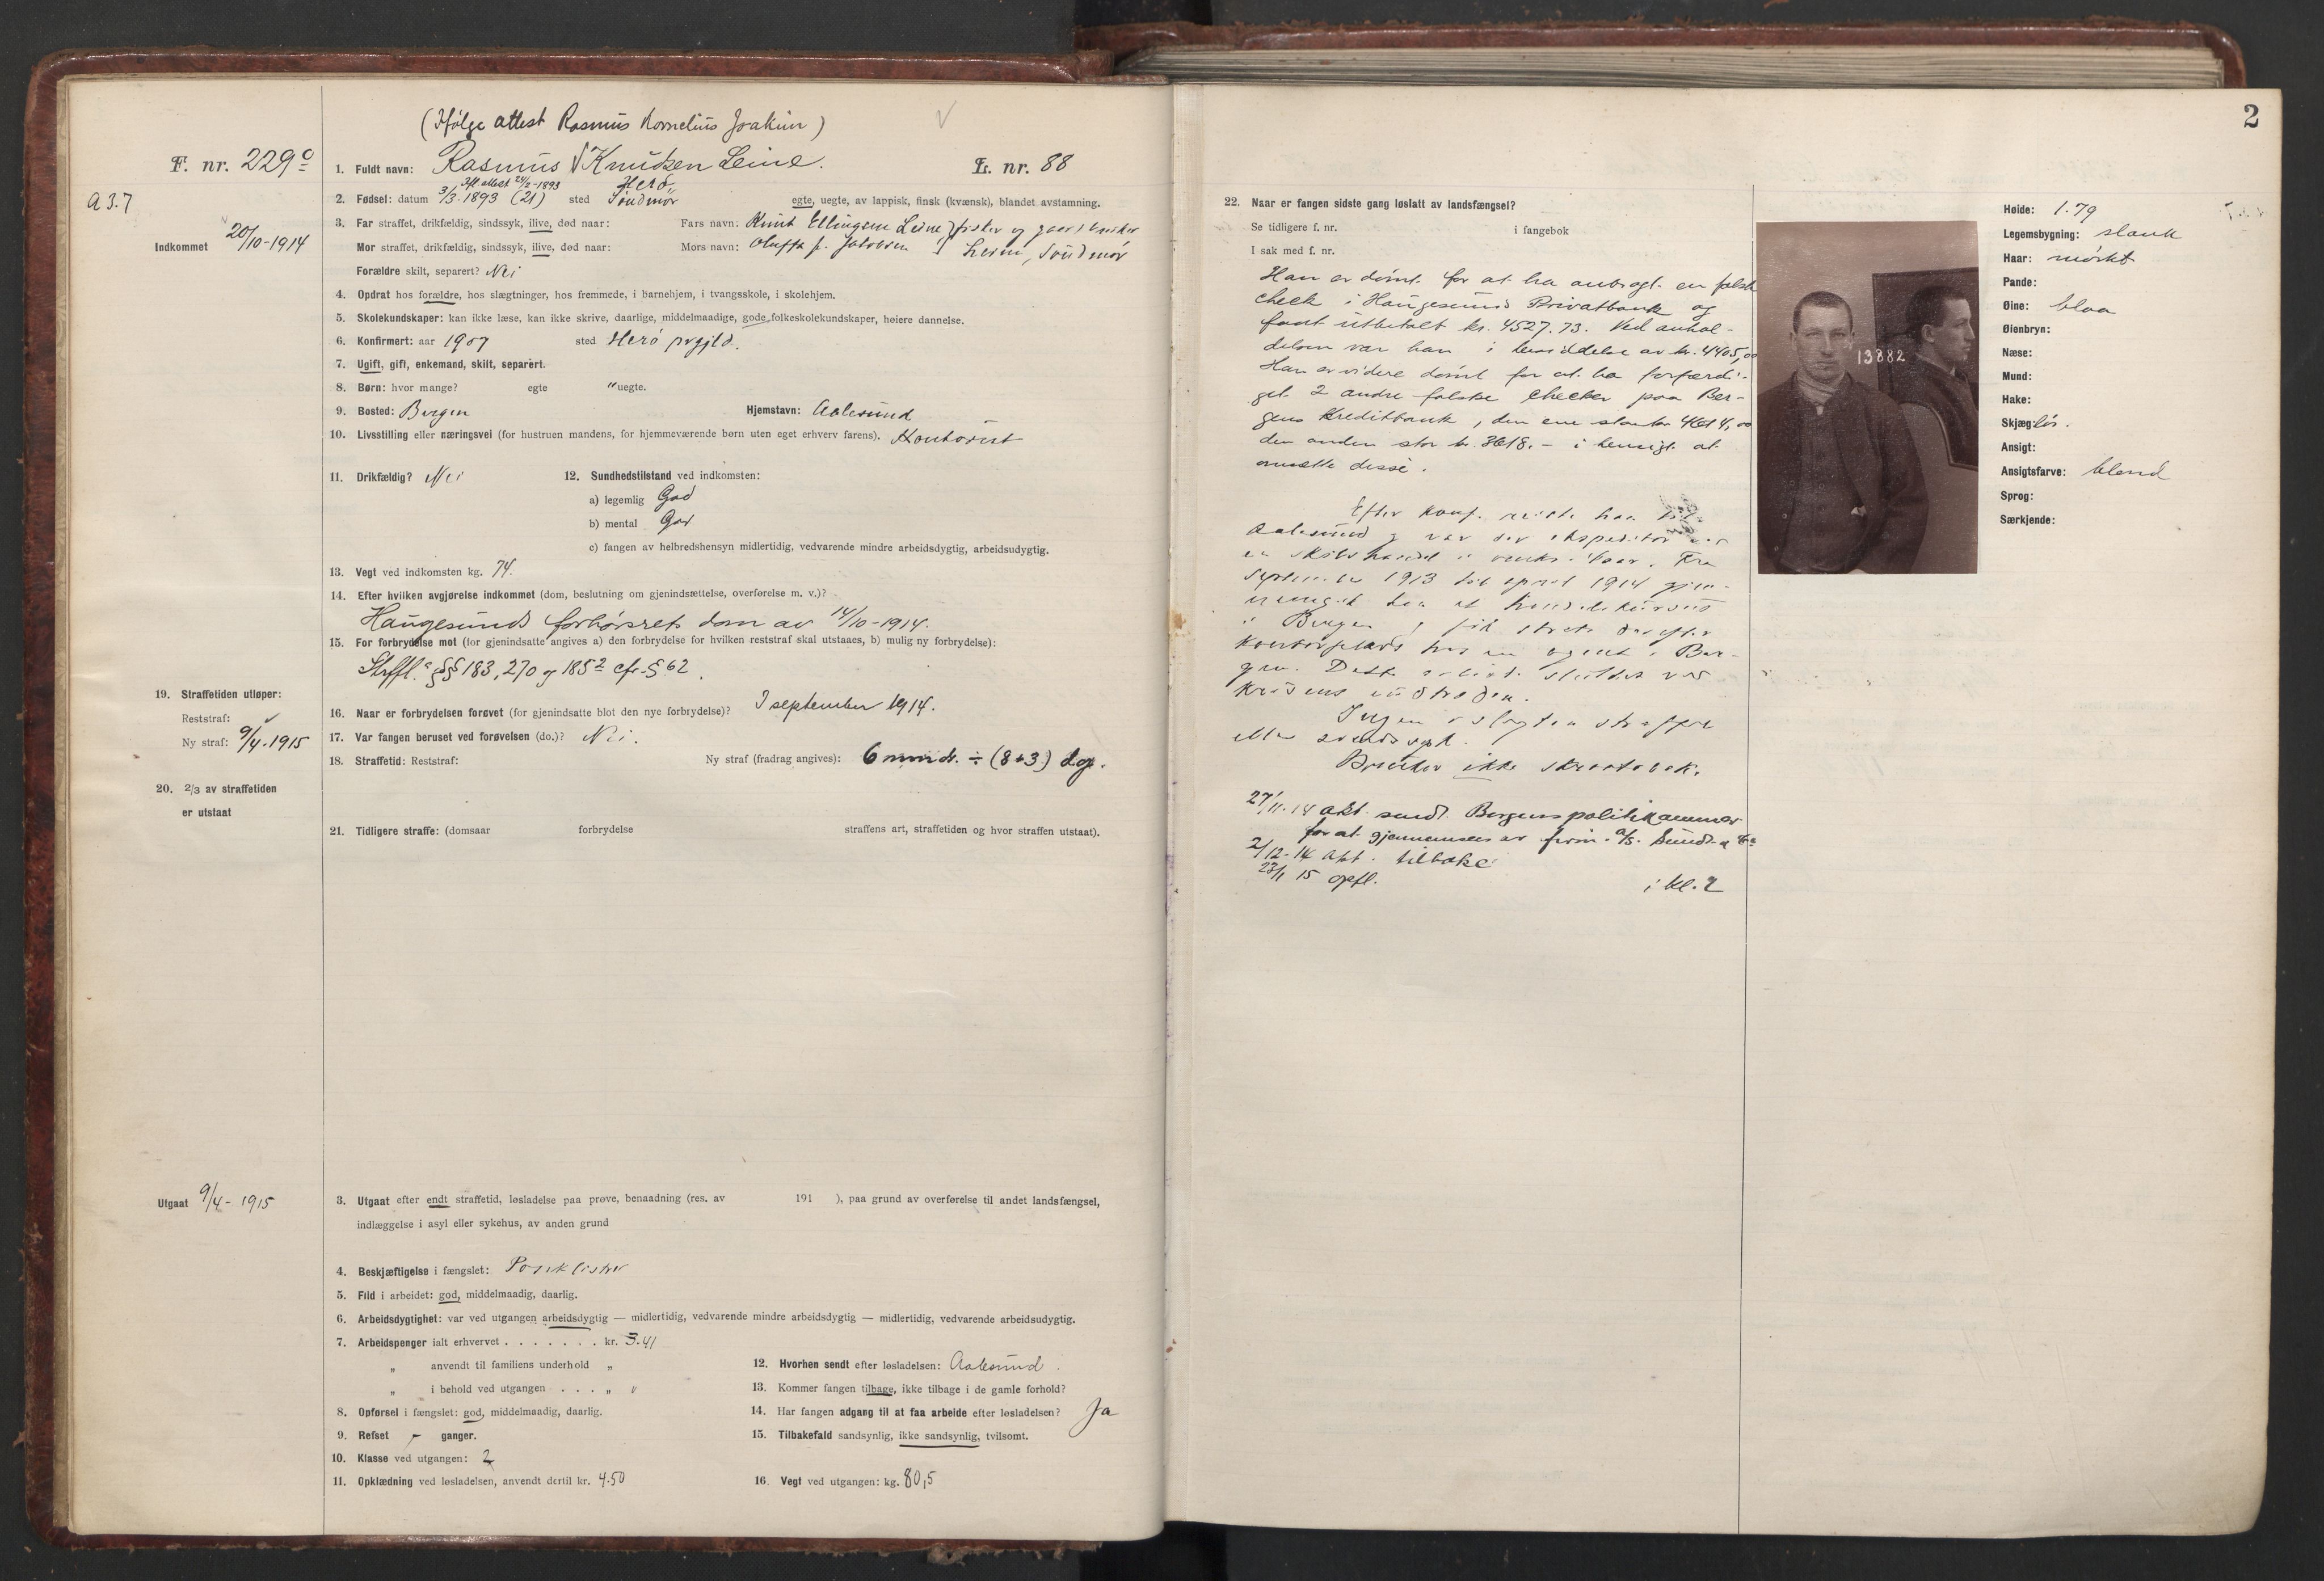 (Ifølge attest Rasmus Kornelius Joakim)
F. nr. 229c
1. Fuldt navn: Rasmus Knudsen Leine.
L. nr. 88
A 3.7
Ifl. attest 24/2-1893
Herö
2. Fødsel: datum 3/3 1893 (21) sted Söndmör egte, uegte, av lappisk, finsk (kvænsk), blandet avstamning.
Indkommet 20/10-1914
3. Far straffet, drikfældig, sindssyk, ilive, død naar: Fars navn: Knut Ellingsen Leine fisker og gaardbruker
Mor straffet, drikfældig, sindssyk, ilive, død naar: Mors navn: Oluffa f. Jakobsen Leine, Söndmör
Forældre skilt, separert? Nei
4. Opdrat hos forældre, hos slægtninger, hos fremmede, i barnehjem, i tvangsskole, i skolehjem.
5. Skolekundskaper: kan ikke læse, kan ikke skrive, daarlige, middelmaadige, gode folkeskolekundskaper, høiere dannelse.
6. Konfirmert: aar 1907 sted Herö prgjld.
7. Ugift, gift, enkemand, skilt, separert.
8. Børn: hvor mange? egte " uegte.
9. Bosted: Bergen Hjemstavn: Aalesund
10. Livsstilling eller næringsvei (for hustruen mandens, for hjemmeværende børn uten eget erhverv farens). Kontorist
11. Drikfældig? Nei 12. Sundhedstilstand ved indkomsten:
a) legemlig God
b) mental God
c) fangen av helbredshensyn midlertidig, vedvarende mindre arbeidsdygtig, arbeidsudygtig.
13. Vegt ved indkomsten kg. 74.
14. Efter hvilken avgjørelse indkommet (dom, beslutning om gjenindsættelse, overførelse m. v.)?
Haugesunds forhörsrets dom av 14/10-1914.
15. For forbrydelse mot (for gjenindsatte angives a) den forbrydelse for hvilken reststraf skal utstaaes, b) mulig ny forbrydelse):
Strffl. §§ 183, 270 og 185 2 cfr. § 62.
19. Straffetiden utløper:
Reststraf:
Ny straf: 9/4-1915
16. Naar er forbrydelsen forøvet (for gjenindsatte blot den nye forbrydelse)? I september 1914.
17. Var fangen beruset ved forøvelsen (do.)? Nei.
18. Straffetid: Reststraf: Ny straf (fradrag angives): 6 mnd. ÷ (8+3) dge.
20. 2/3 av straffetiden
er utstaat
21. Tidligere straffe: (domsaar forbrydelse straffens art, straffetiden og hvor straffen utstaat).
Utgaat 9/4-1915
3. Utgaat efter endt straffetid, løsladelse paa prøve, benaadning (res. av 191 ), paa grund av overførelse til andet landsfængsel,
indlæggelse i asyl eller sykehus, av anden grund
4. Beskjæftigelse i fængslet: Poseklister
5. Flid i arbeidet: god, middelmaadig, daarlig.
6. Arbeidsdygtighet: var ved utgangen arbeidsdygtig — midlertidig, vedvarende mindre arbeidsdygtig — midlertidig, vedvarende arbeidsudygtig.
7. Arbeidspenger ialt erhvervet . . . . . . . kr. 3.41
" anvendt til familiens underhold "
" i behold ved utgangen . . . "
8. Opførsel i fængslet: god, middelmaadig, daarlig.
9. Refset - ganger.
10. Klasse ved utgangen: 2
11. Opklædning ved løsladelsen, anvendt dertil kr. 4.50
12. Hvorhen sendt efter løsladelsen: Aalesund.
13. Kommer fangen tilbage, ikke tilbage i de gamle forhold?
14. Har fangen adgang til at faa arbeide efter løsladelsen? Ja
15. Tilbakefald sandsynlig, ikke sandsynlig, tvilsomt.
16. Vegt ved utgangen: kg. 80,5
2
22. Naar er fangen sidste gang løslatt av landsfængsel?
Se tidligere f. nr. i fangebok
I sak med f. nr.
Han er dömt for at ha anbragt en falsk
check i Haugesunds Privatbank og
faat utbetalt kr. 4527.73. Ved anhol-
delsen var han i besiddelse av kr. 4405,00
Han er videre dömt for at ha forfærdi-
get 2 andre falske checker paa Ber-
gens Kreditbank, den ene stor kr. 4614,00
den anden stor kr. 3618.- i hensigt at
omsætte disse.
Efter konf. reiste han til
Aalesund og var der ekspeditör
en
September 1913 til april 1914 gjen-
nemgik han et handelskursus
i Bergen og fik straks derefter
kontorplads hos en agent i Ber-
gen. Dette arbeide sluttet ved
krisens indtræden.
Ingen i slegten straffet
eller sindssyk.
Bruker ikke skraatobak.
27/11-14 akt. sendt Bergens politikammer
for at gjennemsees av firm. A/S. Sundt & Co
2/12-14 akt. tilbake
23/1 15 opfl. i kl. 2
13882
Høide: 1.79
Legemsbygning: slank
Haar: mörkt
Pande:
Øine: blaa
Øienbryn:
Næse:
Mund:
Hake:
Skjæg: lös.
Ansigt:
Ansigtsfarve: blond
Sprog:
Særkjende: